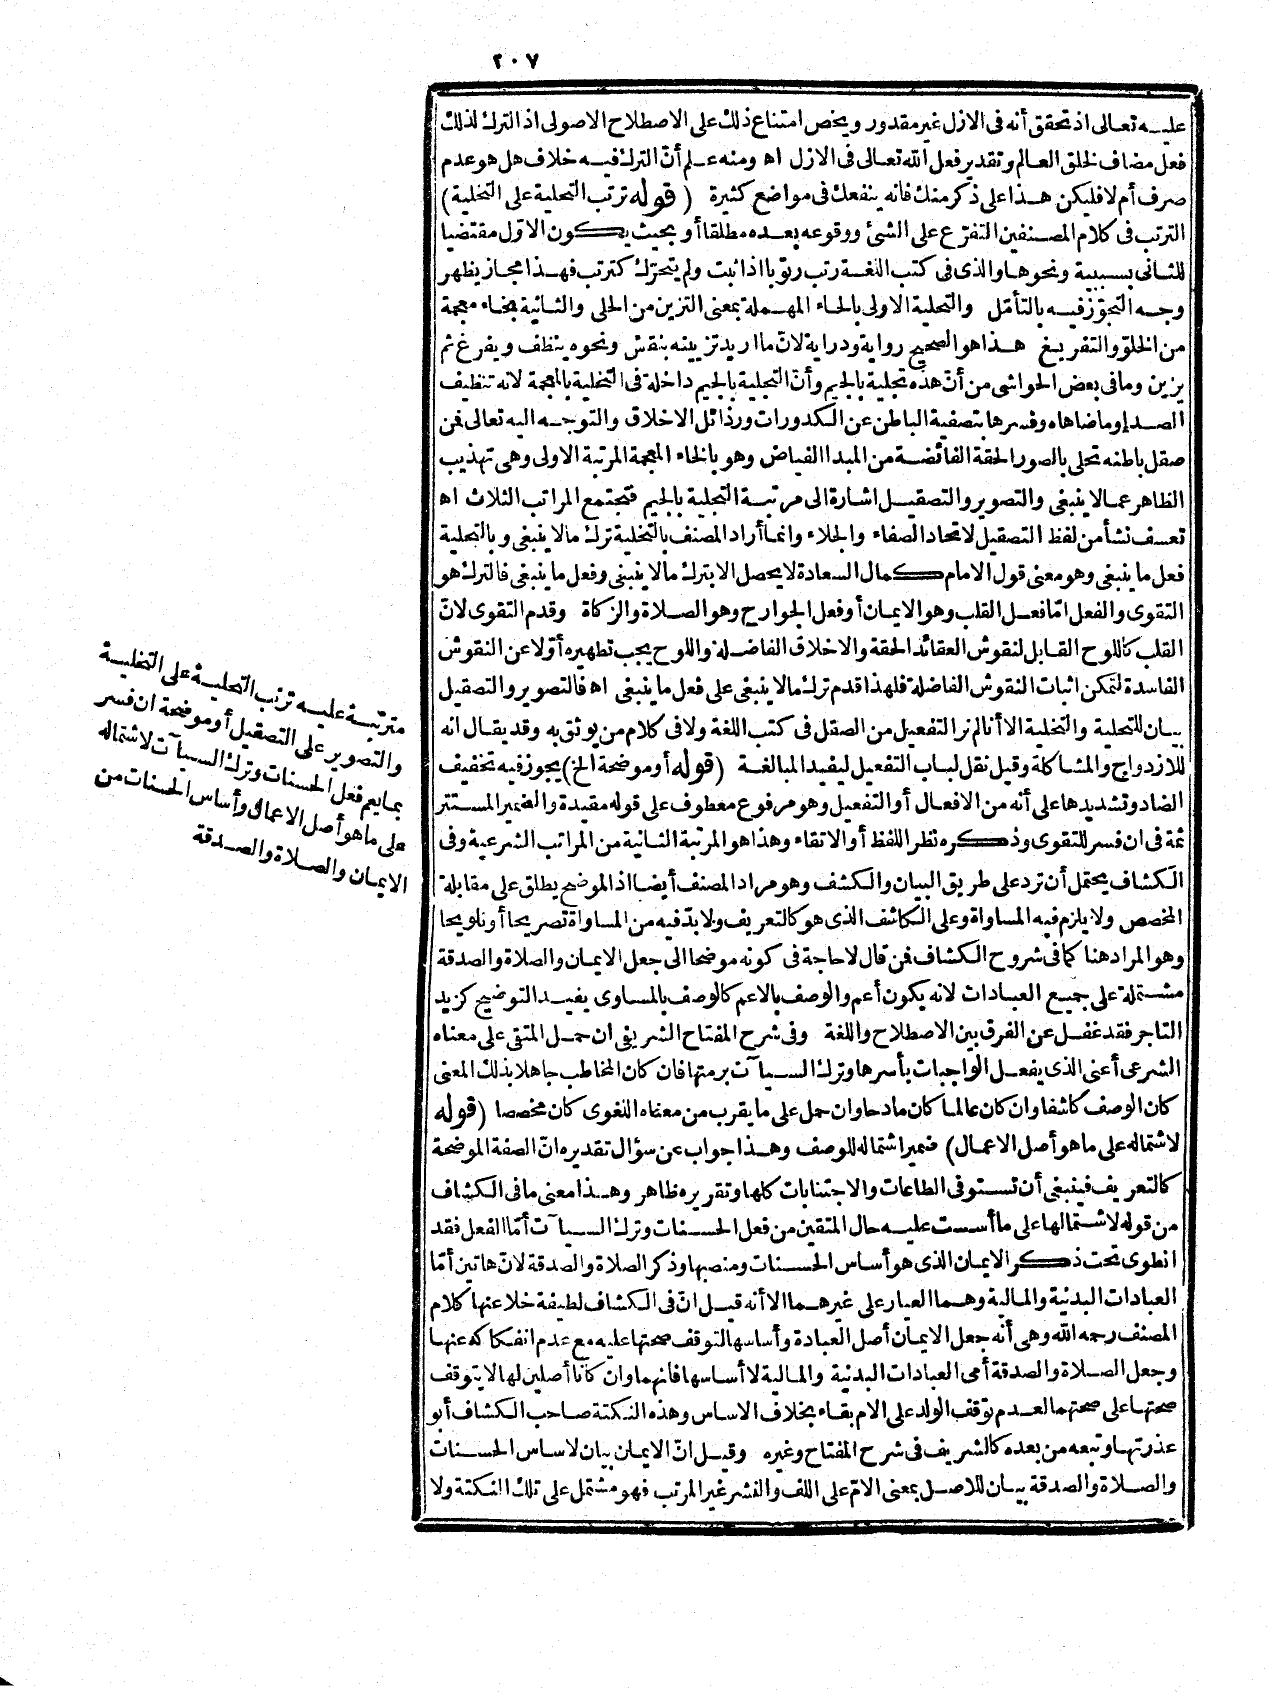 ٢٠٧
عليه تعالى اذ تحقق أنه فى الازل غير مقدور ويخص امتناع ذلك على الاصطلاح الاصولى اذ الترك لذلك
فعل مضاف لخلق العالم وتقدير فعل الله تعالى فى الازل اه ومنه علم أنّ الترك فيه خلاف هل هو عدم
صرف أم لا فليكن هذا على ذكر منك فانه ينفعك فى مواضع كثيرة (قوله ترتب التحلية على التخلية)
الترتب فى كلام المصنفين التفرّع على الشئ ووقوعه بعده مطلقا أو بحيث يكون الاوّل مقتضيا
للثانى بسببية ونحوها والذى فى كتب اللغة رتب رتوبا اذا ثبت ولم يتحرّك كترتب فهذا مجاز يظهر
وجه التجوّز فيه بالتأمّل والتحلية الاولى بالحاء المهملة بمعنى التزين من الحلى والثانية بخاء معجمة
من الخلوّ والتفريغ هذا هو الصحيح رواية ودراية لانّ ما اريد تزيينه بنقش ونحوه ينظف ويفرغ ثم
يزين وما فى بعض الحواشى من أنّ هذه تجلية بالجيم وأنّ التجلية بالجيم داخلة فى التخلية بالمعجمة لانه تنظيف
الصدا وما ضاهاه وفسرها بتصفية الباطن عن الكدورات ورذائل الاخلاق والتوجه اليه تعالى فمن
صقل باطنه تحلى بالصور الحقة الفائضة من المبدا الفياض وهو بالخاء المعجمة المرتبة الاولى وهى تهذيب
الظاهر عمالا ينبغى والتصوير والتصقيل اشارة الى مرتبة التجلية بالجيم فتجتمع المراتب الثلاث اه
تعسف نشأ من لفظ التصقيل لاتحاد الصفاء والجلاء وانما أراد المصنف بالتخلية ترك مالا ينبغى وبالتحلية
فعل ما ينبغى وهو معنى قول الامام كمال السعادة لا يحصل الا بترك مالا ينبغى وفعل ما ينبغى فالترك هو
التقوى والفعل امّا فعل القلب وهو الايمان أو فعل الجوارح وهو الصلاة والزكاة وقدم التقوى لانّ
القلب كاللوح القابل لنقوش العقائد الحقة والاخلاق الفاضلة واللوح يجب تطهيره أوّلا عن النقوش
الفاسدة لتمكن اثبات النقوش الفاضلة فلهذا قدم ترك مالا ينبغى على فعل ما ينبغى اه فالتصوير والتصقيل
بيان للتحلية والتخلية الا أنا لم نر التفعيل من الصقل فى كتب اللغة ولا فى كلام من يوثق به وقد يقال انه
للازدواج والمشاكلة وقيل نقل لباب التفعيل ليفيد المبالغة (قوله أو موضحة الخ) يجوز فيه تخفيف
الضاد وتشديدها على أنه من الافعال أو التفعيل وهو مرفوع معطوف على قوله مقيدة والضمير المستتر
ثمة فى ان فسر للتقوى وذكره نظر اللفظ أو الاتقاء وهذا هو المرتبة الثانية من المراتب الشرعية وفى
الكشاف يحتمل أن ترد على طريق البيان والكشف وهو مراد المصنف أيضا اذ الموضح يطلق على مقابلة
المخصص ولا يلزم فيه المساواة وعلى الكاشف الذى هو كالتعريف ولا بدّ فيه من المساواة تصريحا أو تلويحا
وهو المراد هنا كما فى شروح الكشاف فمن قال لا حاجة فى كونه موضحا الى جعل الايمان والصلاة والصدقة
مشتملة على جميع العبادات لانه يكون أعم والوصف بالاعم كالوصف بالمساوى يفيد التوضيح كزيد
التاجر فقد غفل عن الفرق بين الاصطلاح واللغة وفى شرح المفتاح الشريفى ان حمل المتقى على معناه
الشرعى أعنى الذى يفعل الواجبات بأسرها وترك السيآت برمتها فان كان المخاطب جاهلا بذلك المعنى
كان الوصف كاشفا وان كان عالما كان مادحا وان حمل على ما يقرب من معناه اللغوى كان مخصصا (قوله
لاشتماله على ما هو أصل الاعمال) ضمير اشتماله للوصف وهذا جواب عن سؤال تقديره انّ الصفة الموضحة
كالتعريف فينبغى أن تستوفى الطاعات والاجتنابات كلها وتقريره ظاهر وهذا معنى ما فى الكشاف
من قوله لاشتمالها على ما أسست عليه حال المتقين من فعل الحسنات وترك السيآت أمّا الفعل فقد
انطوى تحت ذكر الايمان الذى هو أساس الحسنات ومنصبها وذكر الصلاة والصدقة لانّ هاتين أمّا
العبادات البدنية والمالية وهما العيار على غيرهما الا أنه قيل انّ فى الكشاف لطيفة خلا عنها كلام
المصنف رحمه الله وهى أنه جعل الايمان أصل العبادة وأساسها لتوقف صحتها عليه مع عدم انفكاكه عنها
وجعل الصلاة والصدقة أمى العبادات البدنية والمالية لا أساسها فانهما وان كانا أصلين لها لا يتوقف
صحتها على صحتهما لعدم توقف الولد على الام بقاء بخلاف الاساس وهذه النكتة صاحب الكشاف أبو
عذرتها وتبعه من بعده كالشريف فى شرح المفتاح وغيره وقيل انّ الايمان بيان لاساس الحسنات
والصلاة والصدقة بيان للاصل بمعنى الامّ على اللف والنشر غير المرتب فهو مشتمل على تلك النكتة ولا
مترتبة عليه ترتب التحلية على التخلية
والتصوير على التصقيل أو موضحة ان فسر
بما يعم فعل الحسنات وترك السيآت لاشتماله
على ما هو أصل الاعمال وأساس الحسنات من
الايمان والصلاة والصدقة